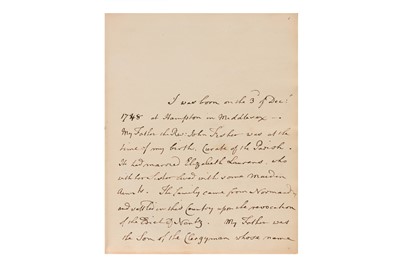 I was born on the 3d of Decr
1748 at Hampton in Middlesex —
My Father the Revd John Fisher was at the
time of my birth, Curate of the Parish
He had married Elizabeth Laurens, who
with her Sister lived with some Maiden
Aunts. The family came from Normandy
and settled in this Country upon the revocation
of the Edict of Nantz. My Father was
the Son of the Clergyman whose name